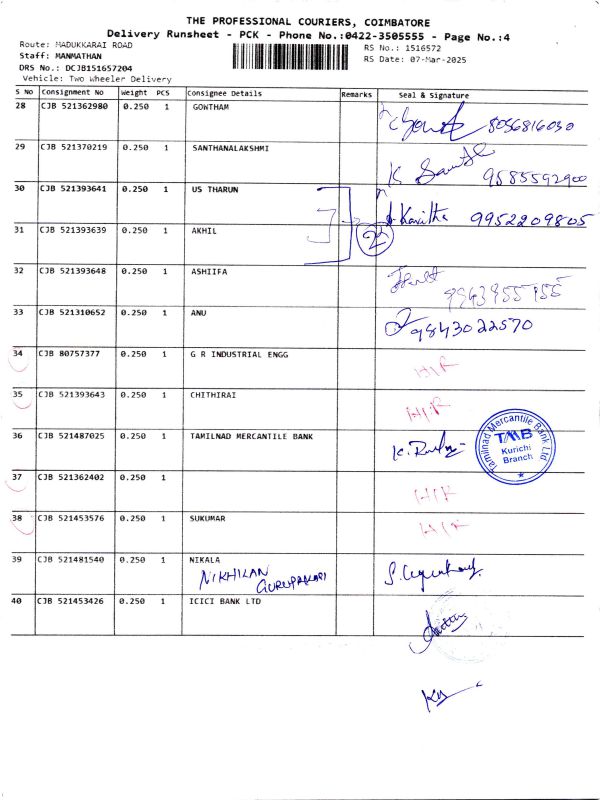 THE PROFESSIONAL COURIERS, COIMBATORE
Delivery Runsheet - PCK - Phone No.:0422-3505555 - Page No.:4
Route: MADUKKARAI ROAD
RS No.: 1516572
Staff: MANMATHAN
RS Date: 07-Mar-2025
DRS No.: DCJB151657204
Vehicle: Two Wheeler Delivery
S No Consignment No Weight PCS Consignee Details Remarks Seal & Signature
28 CJB 521362980 0.250 1 GOWTHAM 8056816030
29 CJB 521370219 0.250 1 SANTHANALAKSHMI K 9585592900
30 CJB 521393641 0.250 1 US THARUN Kavitha 9952209805
31 CJB 521393639 0.250 1 AKHIL 2
32 CJB 521393648 0.250 1 ASHIIFA
33 CJB 521310652 0.250 1 ANU 9843022570
34 CJB 80757377 0.250 1 G R INDUSTRIAL ENGG H/R
35 CJB 521393643 0.250 1 CHITHIRAI H/R
36 CJB 521487025 0.250 1 TAMILNAD MERCANTILE BANK
Tamilnad Mercantile Bank Ltd
TMB
Kurichi
Branch
37 CJB 521362402 0.250 1 H/R
38 CJB 521453576 0.250 1 SUKUMAR H/R
39 CJB 521481540 0.250 1 NIKALA
NIKHILAN
40 CJB 521453426 0.250 1 ICICI BANK LTD